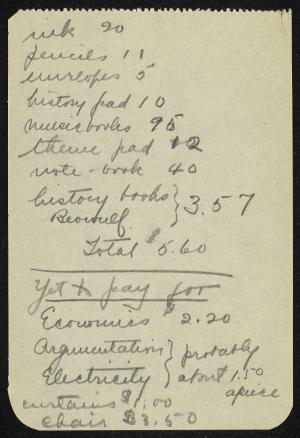 ink 20
pencils 11
envelopes 5
history pad 10
music books 95
theme pad 12
note-book 40
history books } 3.57
Beowulf
Total $5.60
Yet to pay for
Economics $2.20
Argumentation } probably
Electricity } about 1.50
apiece
curtains $1.00
chair $3.50